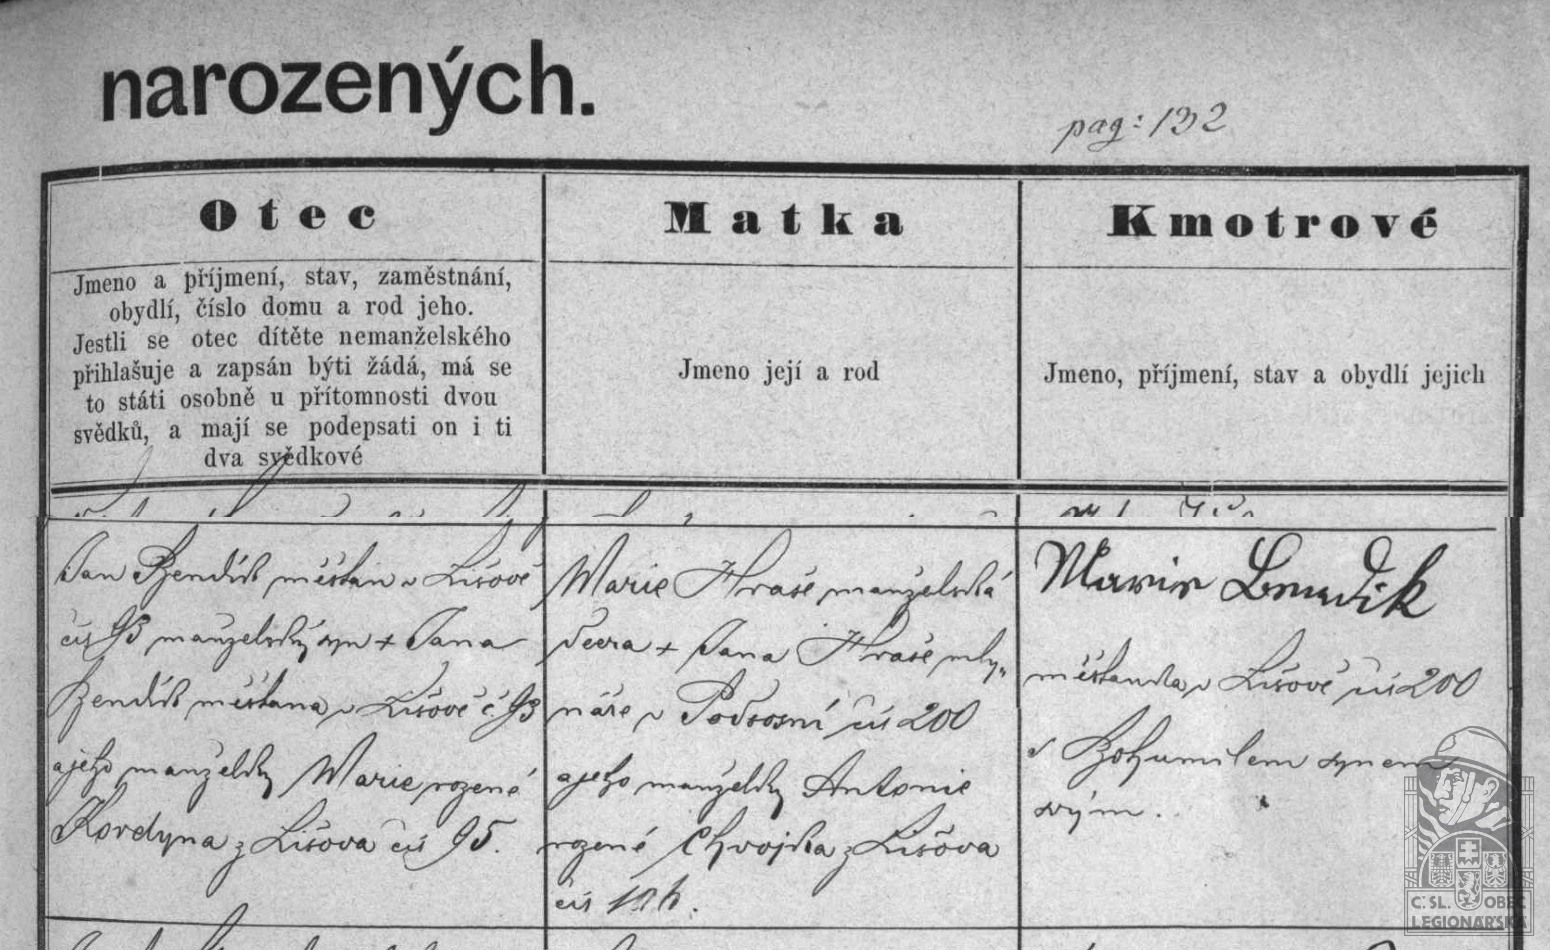 narozených.
pag: 132
Otec
Matka
Kmotrové
Jmeno a příjmení, stav, zaměstnání,
obydlí, číslo domu a rod jeho.
Jestli se otec dítěte nemanželského
přihlašuje a zapsán býti žádá, má se
to státi osobně u přítomnosti dvou
svědků, a mají se podepsati on i ti
dva svědkové
Jmeno její a rod
Jmeno, příjmení, stav a obydlí jejich
Jan Bendík měšťan v Lišově
čís 93 manželský syn + Jana
Bendík měšťana v Lišově č 93
a jeho manželky Marie rozené
Kordyna z Lišova čís 95.
Marie Hraše manželská
dcera + Jana Hraše mly„
náře v Podsosní čís 200
a jeho manželky Antonie
rozené Chvojka z Lišova
čís
Marie Benedik
měšťanka v Lišově čís 200
s Bohumilem synem
svým.
Č. SL. OBEC
LEGIONÁŘSKÁ